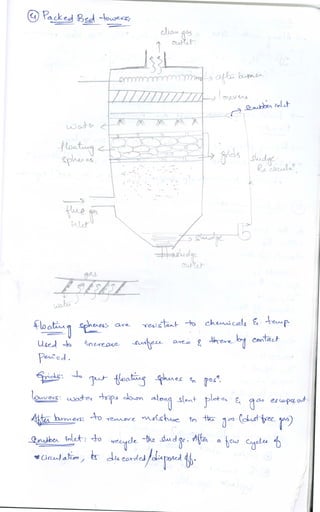 ④ Packed Bed towers
clean gas
outlet
after burner
louvers
Scrubber inlet
water
floating
spheres
grids
sludge
Re circula
flue gas
inlet
sludge
sludge
outlet
gas
water
Floating spheres are resistant to chemicals & temp
Used to increase surface area & there by contact
period.
Grids: to put floating spheres in posn.
louvers: water trips down along slant plates & gas escapes out
After burners: to remove moisture in the gas (dust free gas)
Scrubber inlet: to recycle the sludge. After a few cycles of
circulation, is discarded/disposed off.